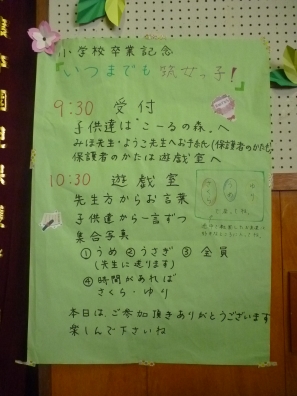 小学校卒業記念
『いつまでも筑女っ子!』
9:30 受付
子供達は"こーるの森"へ
みほ先生・ようこ先生へお手紙(保護者のかたも)
保護者のかたは遊戯室へ
10:30 遊戯室
先生方からお言葉
子供達から一言ずつ
集合写真
①うめ ②うさぎ ③全員
(先生に送ります)
④時間があれば
さくら・ゆり
本日は、ご参加頂きありがとうございます
楽しんで下さいね